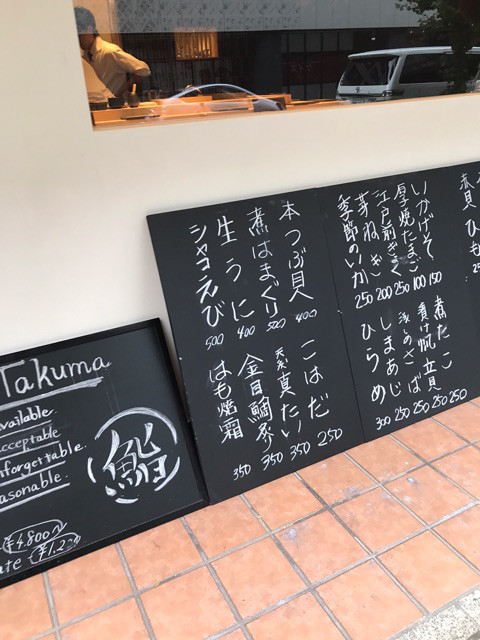 Takuma
vailable.
cceptable
nforgettable.
asonable.
鮨
¥4,800
¥1,2
本つぶ貝 400
煮はまぐり 500
生うに 400
シャコえび 500
こはだ 250
天然真たい 350
金目鯛炙り 350
はも焼霜 350
いかげそ 150
厚焼たまご 100
江戸前きまぐ 250
芽ねぎ 200
季節のいか 250
煮たこ 250
漬け帆立貝 250
しまあじ 250
ひらめ 300
赤貝ひも